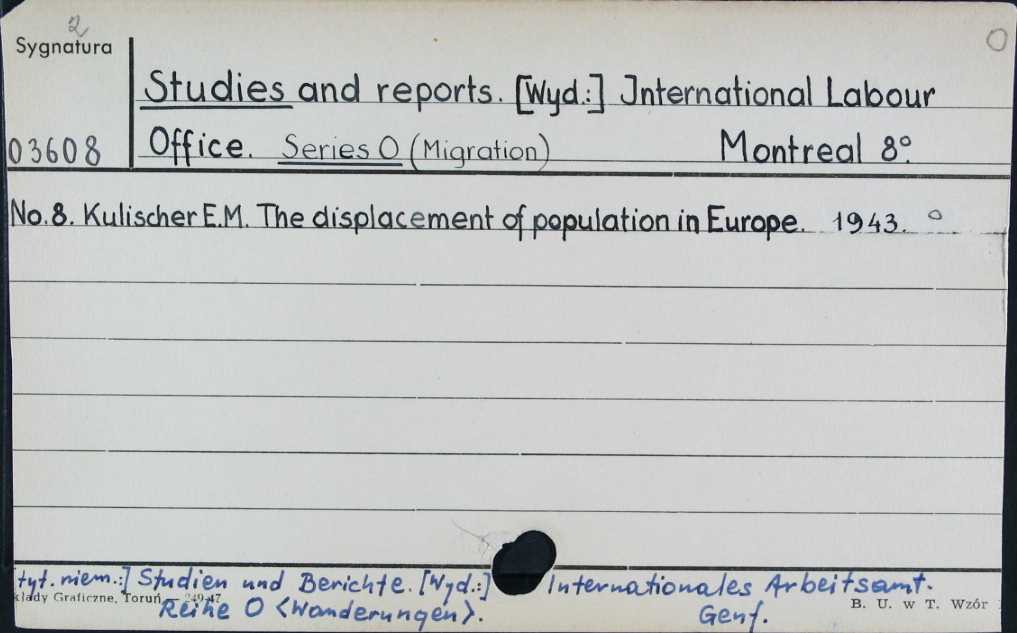 2
Sygnatura
O
Studies and reports. [Wyd.:] International Labour
03608
Office. Series O (Migration) Montreal 8°.
No. 8. Kulischer E.M. The displacement of population in Europe. 1943. °
[tyt. niem.:] Studien und Berichte. [Wyd.:] Internationales Arbeitsamt.
kłady Graficzne, Toruń — 249-47
Reihe O <Wanderungen>. Genf.
B. U. w T. Wzór